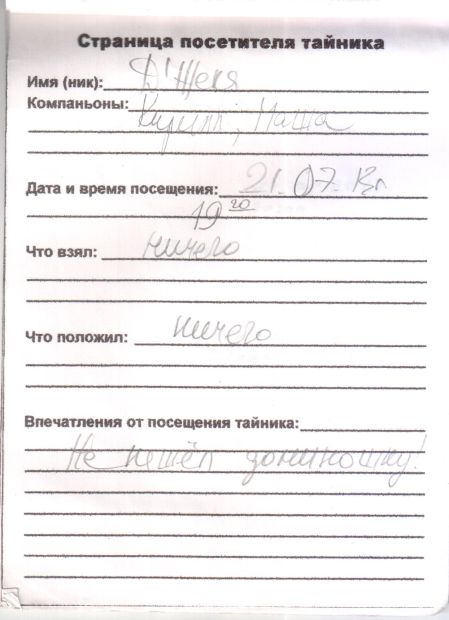 Страница посетителя тайника
Имя (ник): Д'Щекя
Компаньоны:
Кирилл, Маша
Дата и время посещения: 21.07.13г
19 20
Что взял: ничего
Что положил: ничего
Впечатления от посещения тайника:
Не нашёл доминошку!